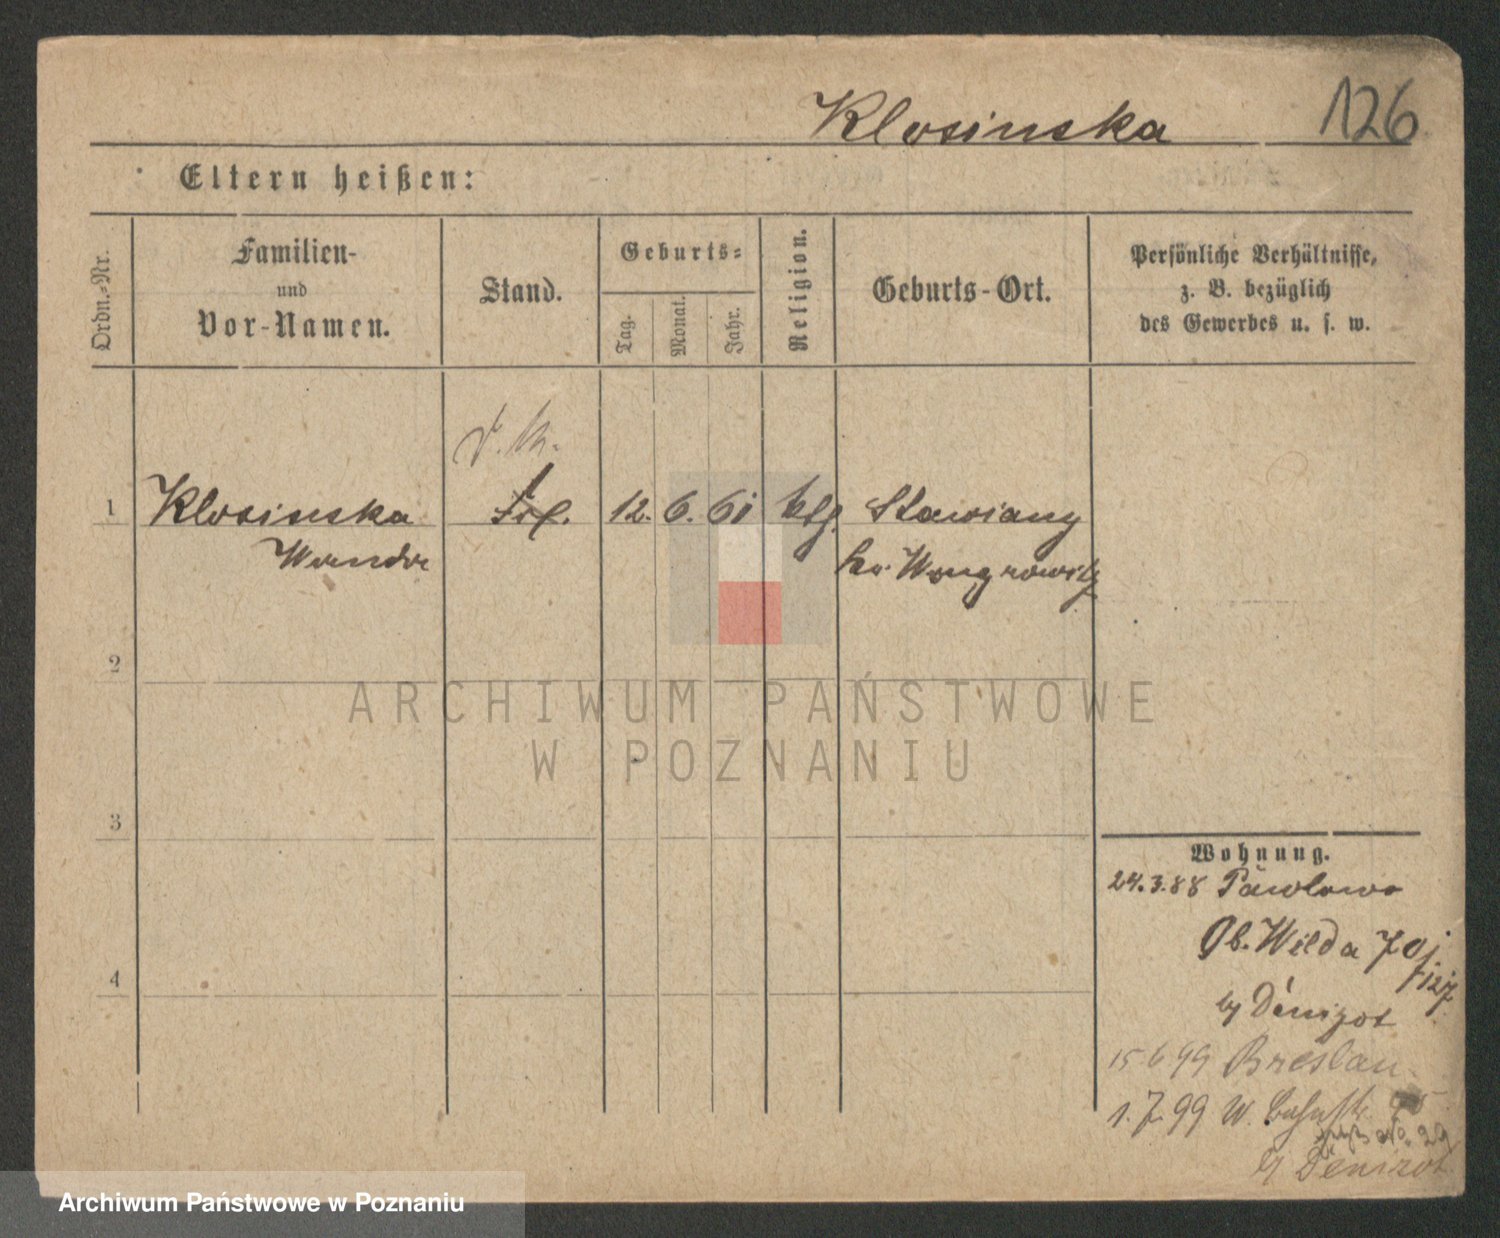 Klosinska 126
Eltern heißen:
Ordn.-Nr.
Familien-
und
Vor-Namen.
Stand.
Geburts-
Tag.
Monat.
Jahr.
Religion.
Geburts-Ort.
Persönliche Verhältnisse,
z. B. bezüglich
des Gewerbes u. s. w.
1 Klosinska 12. 6. 61 ktf. Stawiany
Wanda Kr. Wongrowitz
2
3
4
ARCHIWUM PAŃSTWOWE
W POZNANIU
Wohnung.
24.3.88 Pawlowo
Ob. Wilda 70
by Dénizot
15 6 99 Breslau
1.7.99 W.
by Denizot
Archiwum Państwowe w Poznaniu